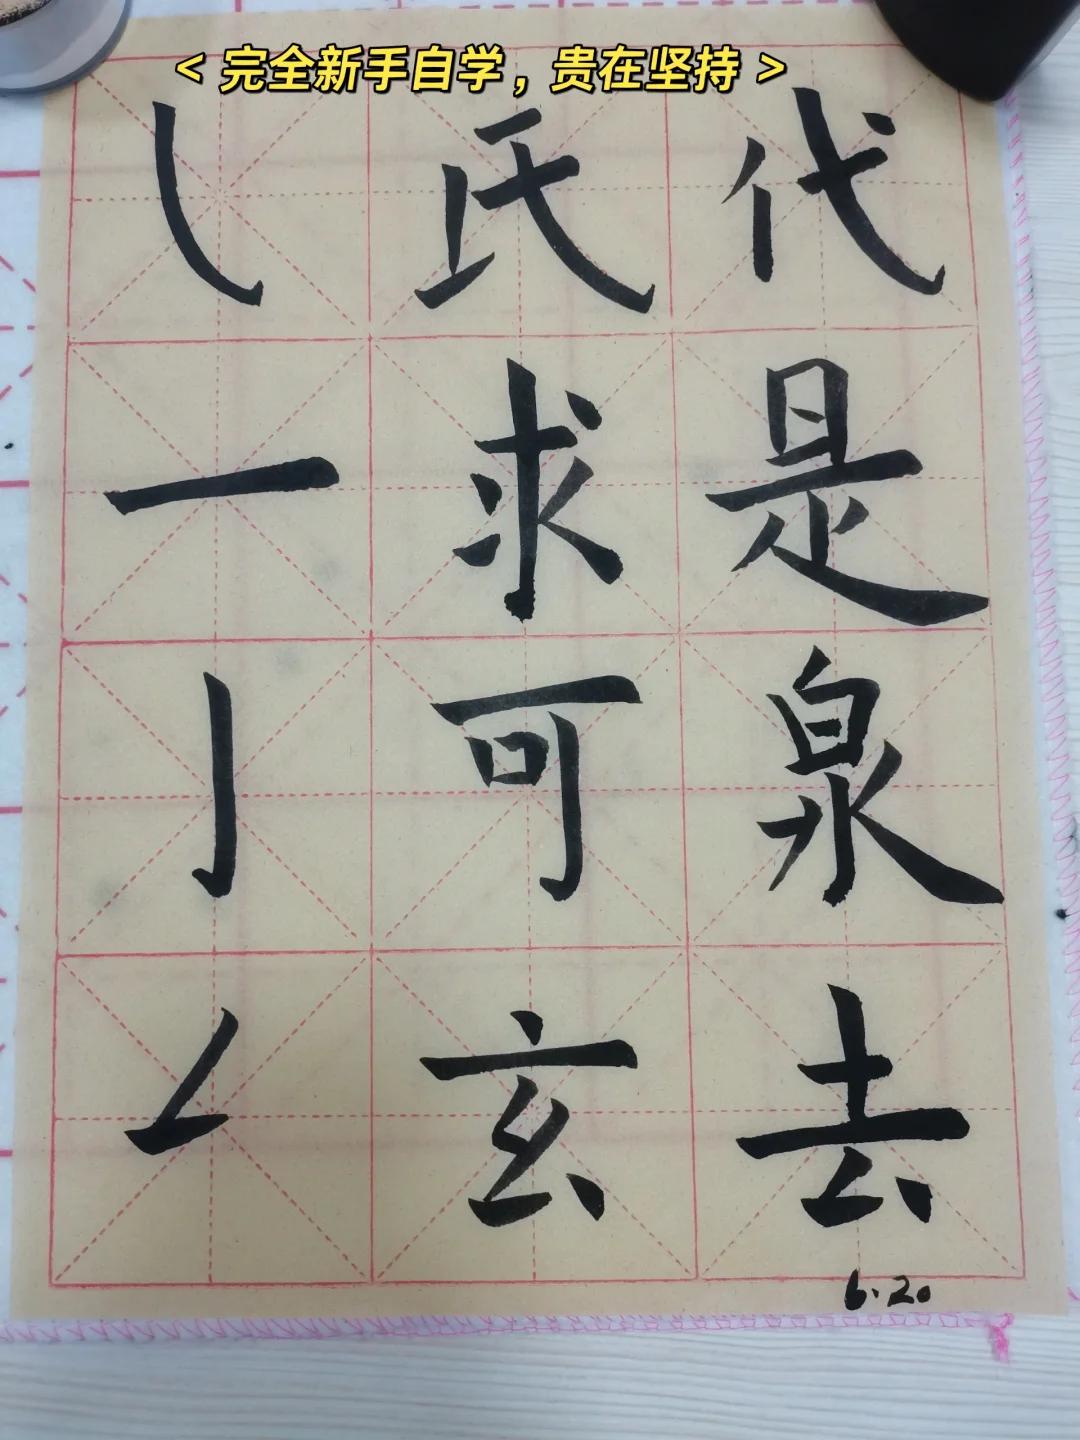 < 完全新手自学，贵在坚持 >
㇂ 氏 代
一 求 是
亅 可 泉
𠃋 玄 去
6.20